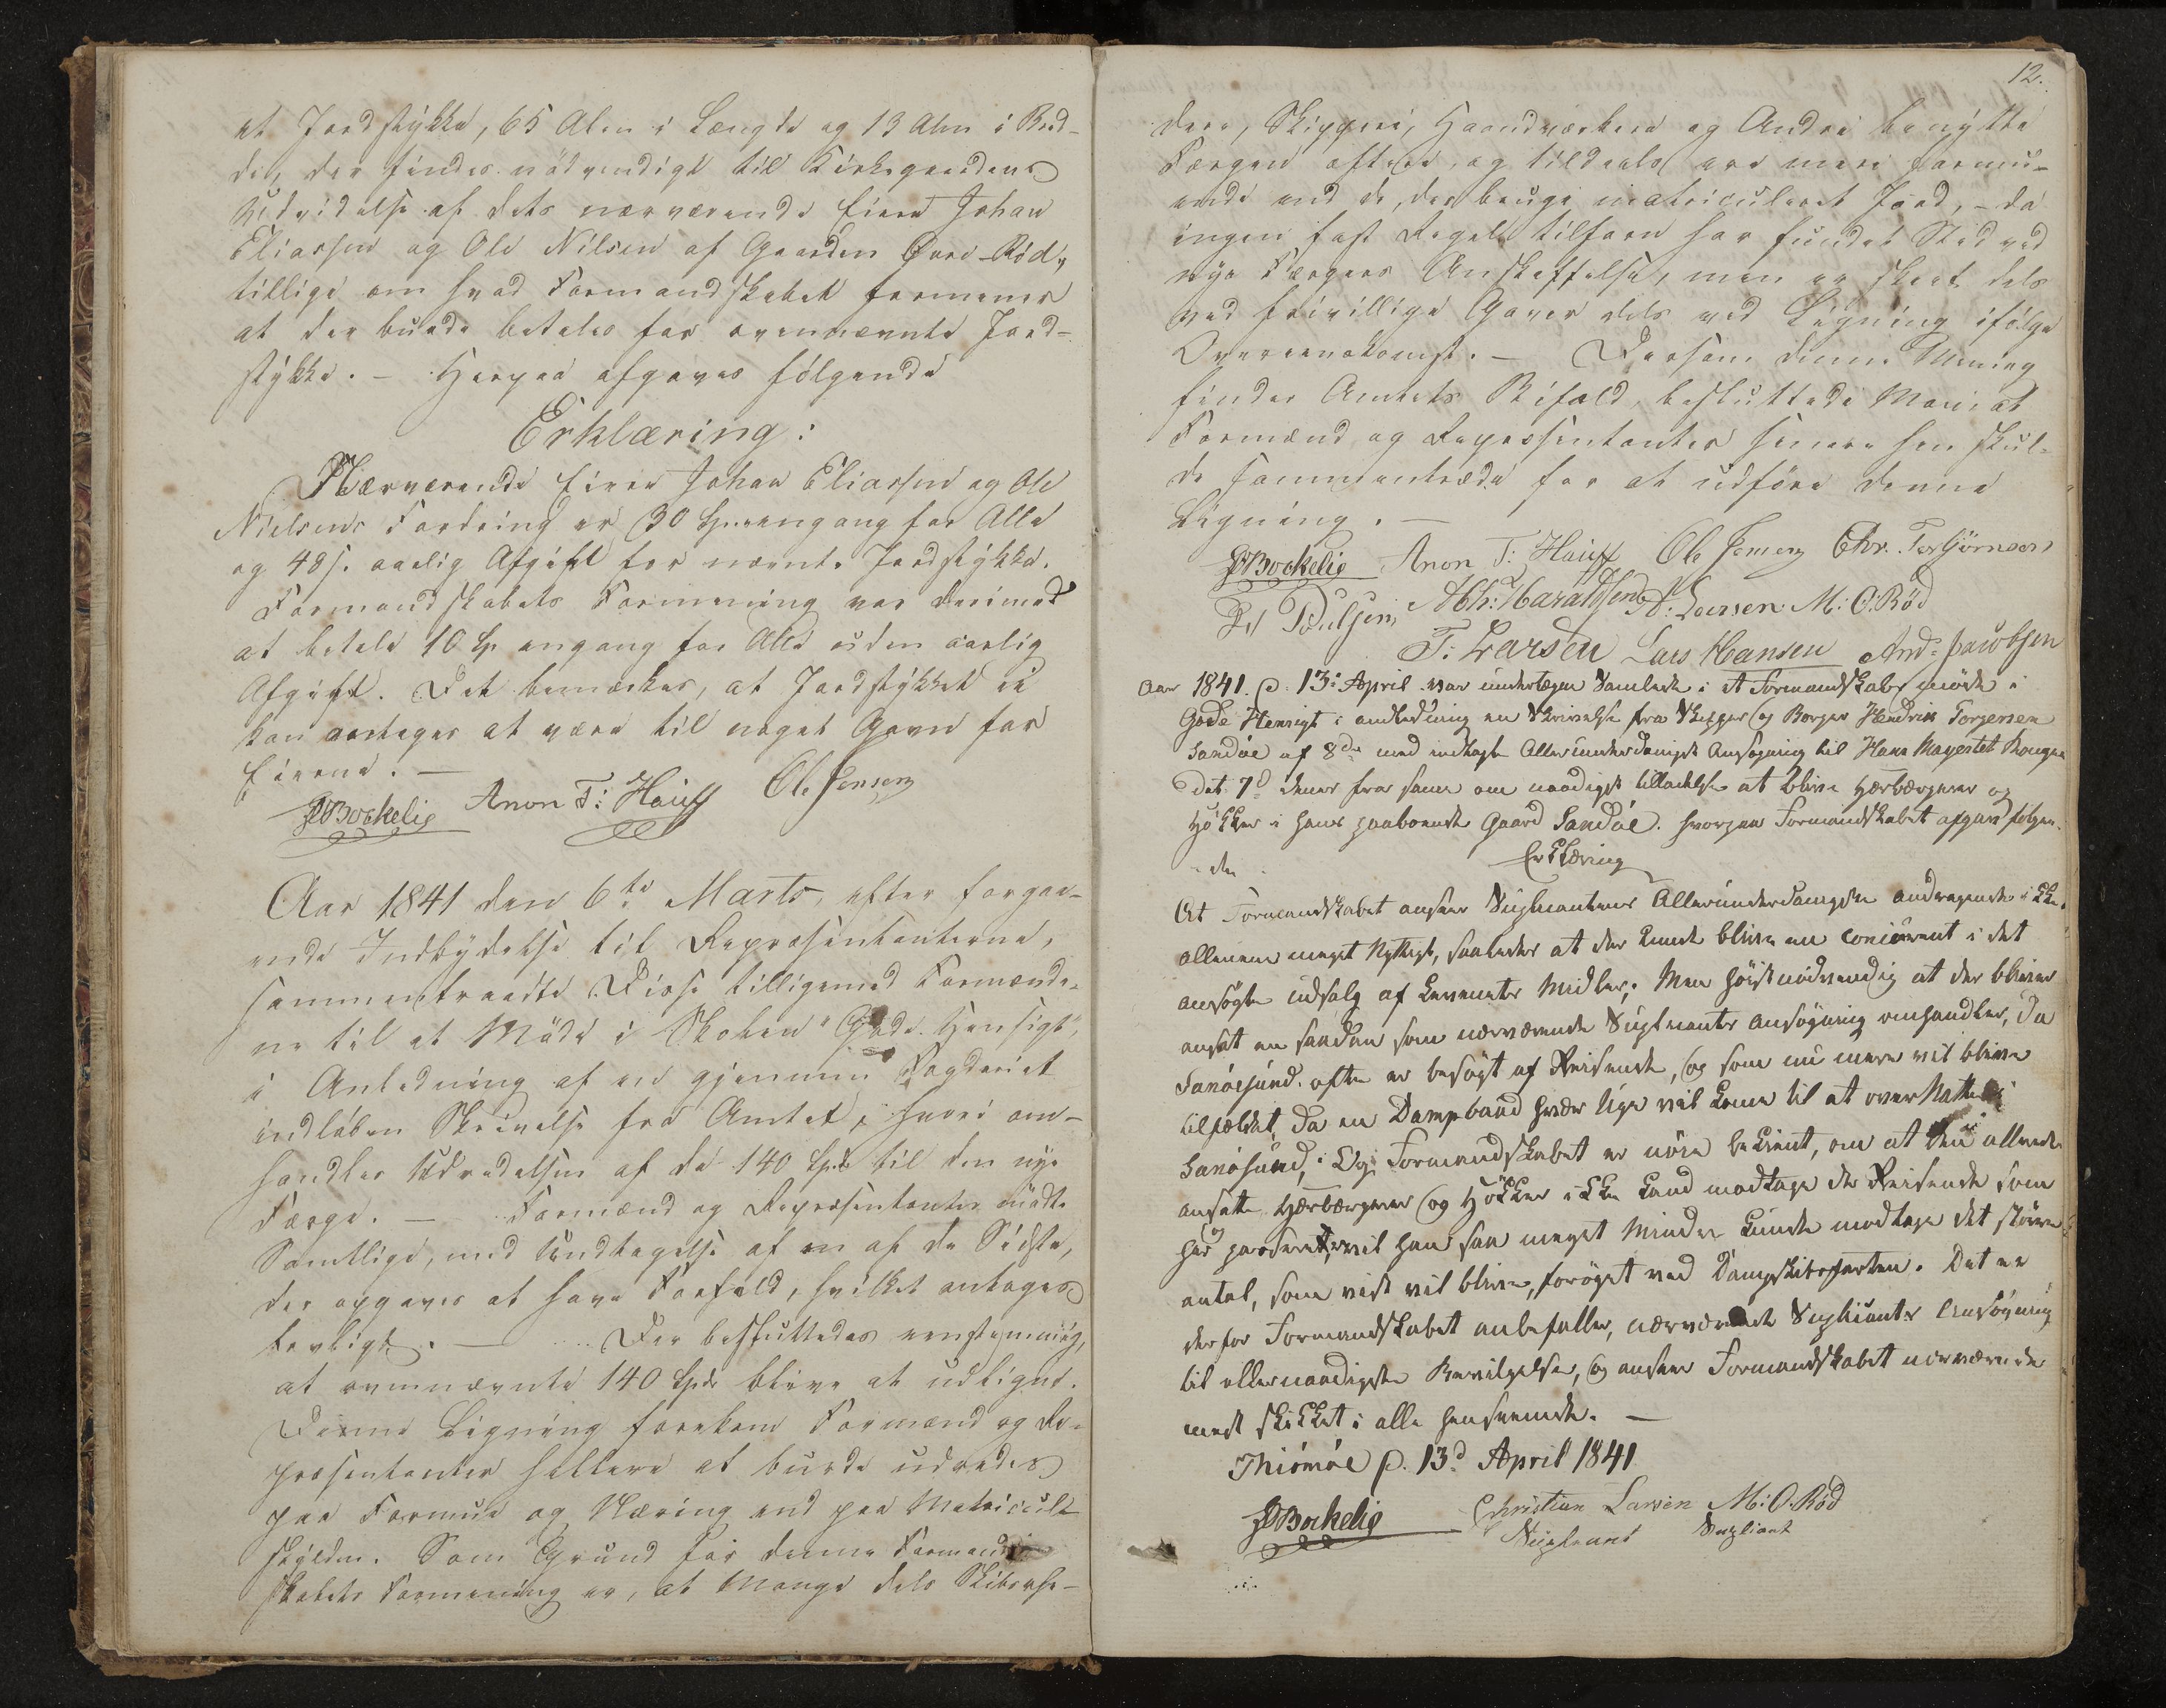 et Jordstykke, 65 Alen i Længde og 13 Alen i Bred-
de, der findes nødvendigt til Kirkegaardens
Udvidelse af dets nærværende Eiere Johan
Eliassen og Ole Nilsen af Gaarden Øvre-Rød,
tillige om hvad Formandskabet formener
at der burde betales for ovennævnte Jord-
stykke. – Herpaa afgaves følgende
Erklæring:
Nærværende Eiere Johan Eliassen og Ole
Nielsens Fordring er 30 Spd. engang for Alle
og 48 s. aarlig Afgift for nævnte Jordstykke.
Formandskabets Formening var derimod
at betale 10 Sp engang for Alle uden aarlig
Afgift. Det bemærkes, at Jordstykket ei
kan antages at være til noget Gavn for
Eierne. –
Bockelie Anon T: Hauff Ole Jensen
Aar 1841 den 6te Marts, efter forgaa-
ende Indbydelse til Repræsentanterne,
sammentraadte Disse tilligemed Formænde-
ne til et Møde i Skolen "Gode Hensigt",
i Anledning af en gjennem Fogderiet
indløben Skrivelse fra Amtet, hvori om-
handles Udredelsen af de 140 Spd til den nye
Færge. – Formænd og Repræsentanter mødte
Samtlige, med Undtagelse af en af de Sidste,
der opgaves at have Forfald, hvilket antages
lovligt. – Der besluttedes eenstemmig,
at ovennævnte 140 Spd. bliver at udligne.
Denne Ligning forekom Formænd og Re-
præsentanter hellere at burde udredes
paa Formue og Næring end paa Matricul-
skylden. Som Grund for denne Formand-
skabets Formening er, at Mange dels Skibsrhe-
12.
dere, Skippere, Haandværkere og Andre benytte
Færgen oftere, og tildeels ere mere formu-
ende end de, der bruge matriculeret Jord, – da
ingen fast Regel tilforn har fundet Sted ved
nye Færgers Anskaffelse, men er skeet dels
ved frivillige Gaver dels ved Ligning ifølge
Overeenskomst. – Dersom denne Mening
finder Amtets Bifald, besluttede Man at
Formænd og Repræsentanter senere hen skul-
de sammentræde for at udføre denne
Ligning. –
Bockelie Anon T: Hauff Ole Jensen Chr. Torbjörnsen
Poulsen Abh: Haraldsen A: Larsen M: O: Rød
T: Larsen Lars Hansen And: Jacobsen
Aar 1841. d. 13de April var undertegne Samlede i et Formandskabs møde i
Gode Hensigt i andledning en Skrivelse fra Skipper og Borger Hendrik Torgersen
Sandøe af 8de med indlagte Allerunderdanigst Ansøgning til Hans Mayestet Kongen
Dat. 7d denes fra samme om naadigst tilladelse at blive Hærbærgerer og
Høkker i hans paaboende Gaard Sandøe. hvorpaa Formandskabet afgav følgen-
de
Erklæring
At Formandskabet anseer Supliantens Allerunderdanigste andragende ikke
allenene meget Nyttigt, saaledes at der kunde blive en concurent i det
ansøgte udsalg af Levenets Midler; Men høist nødvendig at der bliver
ansat en saadan som nærværende Supliants ansøgning omhandler, Da
Sanøesund ofte er besøgt af Reisende, og som nu mere vil blive
tilfældet, da en Dampbaad hver Uge vil kome til at overNatte i
Sanøsund, Og Formandskabet er nøie bekient, om at den allerede
ansatte Hærbærgerer og Høkker ikke kand modtage de Reisende som
har passeret, vil han saa meget Mindre kunde modtage det større
antal, som vist vil blive, forøget ved Dampskibsfarten. Det er
derfor Formandskabet anbefaller, nærværende Supliants Ansøgning
til allernaadigste Bevilgelse, og anseer Formandskabet nærværende
mest skikket i alle henseende. –
Thiømøe d. 13d April 1841
Bockelie Christian Larsen M: O: Rød
Supleant Supliant